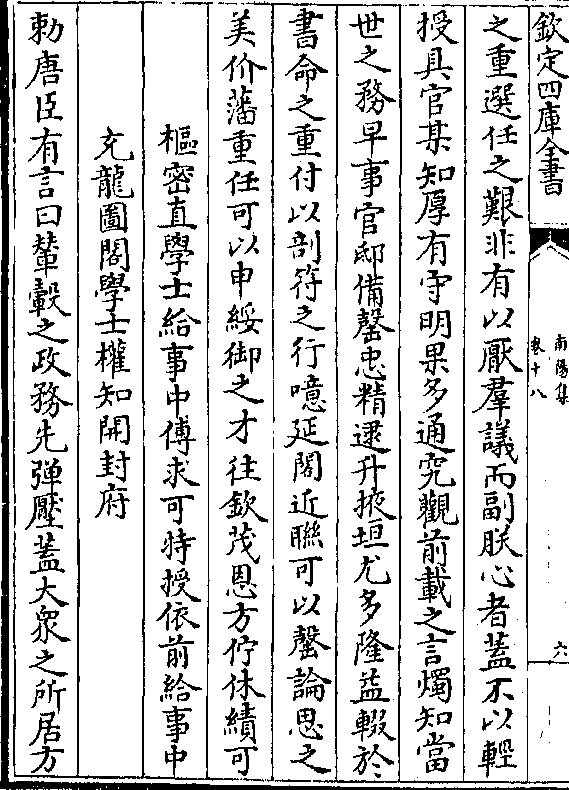 欽定四庫全書
南陽集
卷十八
六
之重選任之艱非有以厭羣議而副朕心者蓋不以輕
授具官某知厚有守明果多通究觀前載之言燭知當
世之務早事官邸備罄忠精逮升掖垣尤多隆益輟於
書命之重付以剖符之行噫延閣近聯可以罄論思之
美价藩重任可以申綏御之才往欽茂恩方佇休績可
樞密直學士給事中傅求可特授依前給事中
充龍圖閣學士權知開封府
勅唐臣有言曰輦轂之政務先弹壓蓋大衆之所居方